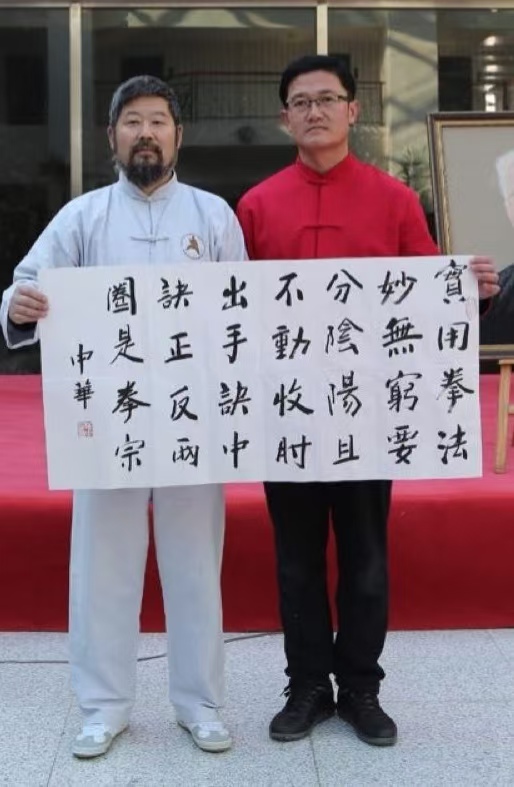 實用拳法
妙無窮要
分陰陽且
不動收肘
出手訣中
訣正反兩
圈是拳宗
中華